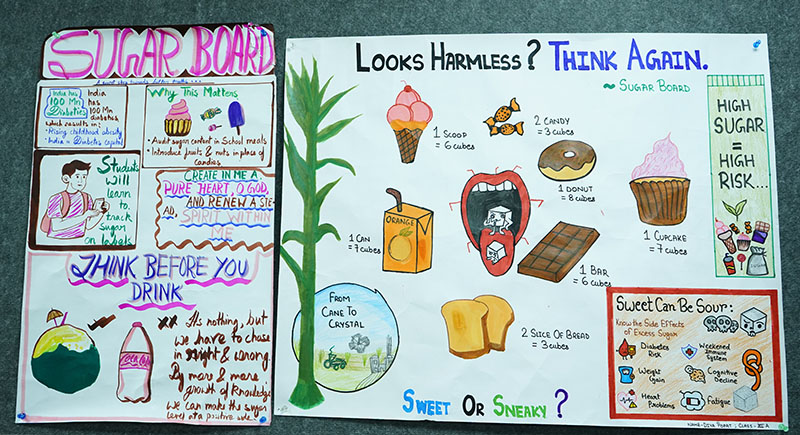 SUGAR BOARD
India has
100 Mn
Diabetics
India
has
100 Mn
diabetes
which results in:
Rising childhood obesity
India = Diabetes capital
Why This Matters
• Audit sugar content in School meals
• Introduce fruits & nuts in place of
candies
Students
will
learn
to
track
sugar
on labels
CREATE IN ME A
PURE HEART, O GOD,
AND RENEW A STE-
AD.
SPIRIT WITHIN
ME
THINK BEFORE YOU
DRINK
It's nothing, but
we have to chose
in right & wrong.
By more & more
growth of knowledge
we can make the sugar
level at a positive side.
LOOKS HARMLESS? THINK AGAIN.
~ SUGAR BOARD
1 SCOOP
= 6 CUBES
2 CANDY
= 3 CUBES
1 DONUT
= 8 CUBES
ORANGE
1 CAN
= 7 CUBES
1 CUPCAKE
= 7 CUBES
1 BAR
= 6 CUBES
2 SLICE OF BREAD
= 3 CUBES
FROM
CANE TO
CRYSTAL
SWEET OR SNEAKY?
HIGH
SUGAR
=
HIGH
RISK...
Sweet Can Be Sour:
Know the Side Effects
of Excess Sugar
Diabetes
Risk
Weekened
Immune
System
Weight
Gain
Cognitive
Decline
Heart
Problems
Fatigue